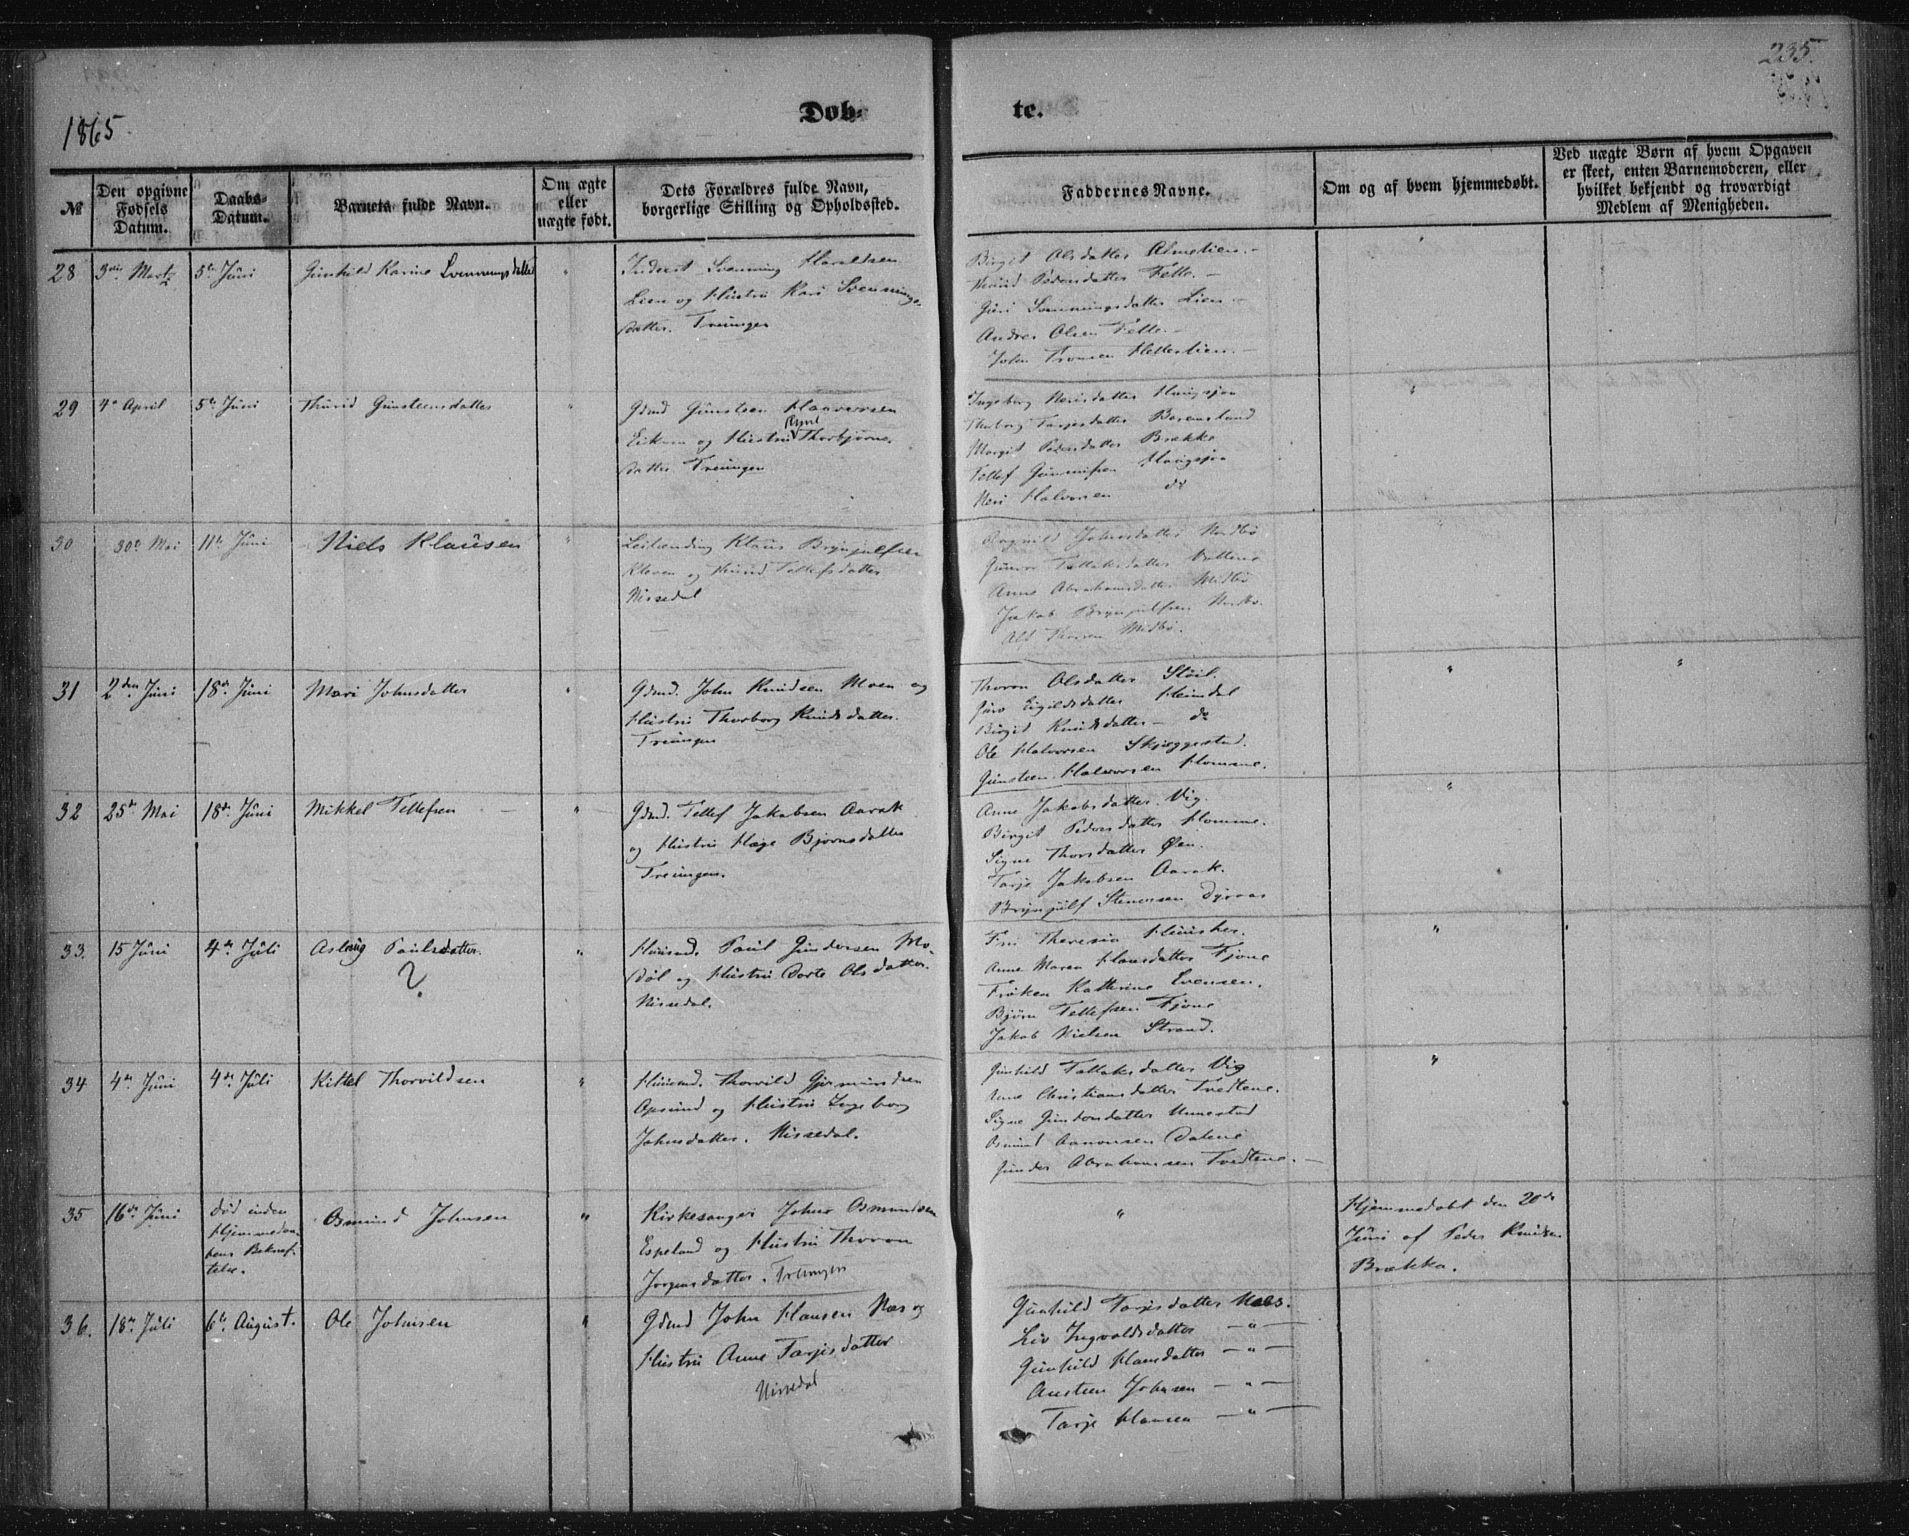 235.
1865
Døb-
te.
№
Den opgivne
Fødsels
Datum.
Daabs-
Datum.
Barnets fulde Navn.
Om ægte
eller
uægte født.
Dets Forældres fulde Navn,
borgerlige Stilling og Opholdssted.
Faddernes Navne.
Om og af hvem hjemmedøbt.
Ved uægte Børn af hvem Opgaven
er skeet, enten Barnemoderen, eller
hvilket bekjendt og troværdigt
Medlem af Menigheden.
28
5te Juni
Gunhild Karine Svenningsdatter
Inderst Svenning Haraldsen
Lien og Hustru Kari Svennings-
datter. Treungen
Birgit Olsdatter
Thurid Pedersdatter Felle
Guri Svenningsdatter Lien
Andres Olsen Felle
John Tronsen
29
4de April
5te Juni
Thurid Gunsteensdatter
Gdmd Gunsteen Halvorsen
Eikum og Hustru Thorbjørns-
datter Treungen
Ingeborg Nerisdatter Haugsjaa
Tarjesdatter
Margit Pedersdatter Brække
Tellef Gunnufsen Haugsjaa
Neri Halvorsen do
30
30te Mai
11te Juni
Niels Klausen
Leilænding Klaus Brynjulfsen
Kleven og Thurid Tellefsdatter
Nissedal
Johnsdatter Nordbø
Gunvor Tallaksdatter
Anne Abrahamsdatter Midbø
Jakob Brynjulfsen Nordbø.
Midbø.
31
2den Juni
18de Juni
Mari Johnsdatter
Gdmd. John Knudsen Moen og
Hustru Thorborg Knudsdatter.
Treungen
Thoron Olsdatter Støil.
Eigildsdatter Heimdal
Birgit Knudsdatter - do
Ole Halvorsen Skjeggestad.
Gunsteen Halvorsen Homme.
32
25de Mai
18de Juni
Mikkel Tellefsen
Gdmd. Tellef Jakobsen Aarak
og Hustru Hæge Bjørnsdatter
Treungen.
Anne Jakobsdatter Vig.
Birgit Pedersdatter Homme.
Signe Thorsdatter Øen.
Tarje Jakobsen Aarak.
Brynjulf Stenersen Dyraas
33.
15 Juni
4de Juli
Aslaug Paulsdatter.
?
Huusmd. Paul Gundersen Mo-
døl og Hustru Dorte Olsdatter.
Nissedal.
Fru Theresia
Anne Maren Hansdatter Fjone
Frøken Kathrine Evensen.
Bjørn Tellefsen Fjone
Jakob Nielsen Strand.
34
4de Juni
4de Juli
Kittel Thorvildsen
Huusmd. Thorvild Gjermundsen
Apsund og Hustru Ingeborg
Johnsdatter. Nissedal.
Gunhild Tallaksdatter Vig
Christiansdatter Tvedtene.
Signe
Osmund Aanonsen Dalene
Gunder Abrahamsen Tvedtene.
35
16de Juni
død inden
Hjemmedaa-
bens Bekræf-
telse.
Osmund Johnsen
Kirkesanger John Osmundsen
Espeland og Hustru Thoron
Jørgensdatter. Treungen
Hjemmedøbt den 20de
Juni af Peder Knudsen
Brække.
36.
18de Juli
6te August.
Ole Johnsen
Gdmd John Hansen Næs og
Hustru Anne Tarjesdatter
Nissedal
Gunhild Tarjesdatter Næs.
Liv Ingvaldsdatter — " —
Gunhild Hansdatter — " —
Austeen Johnsen — " —
Tarje Hansen — " —